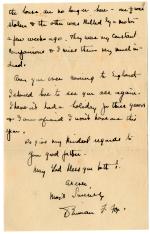 the lovers are no longer here - one given
stolen & the other was killed by a motor
a few weeks ago. They were my constant
companions & I miss them very much in-
deed.
Are you ever coming to England
I should love to see you once again.
I haven't had a holiday for three years
& I am afraid I won't have one this
year.
So give my kindest regards to
your good father.
May God bless you both!
As ever
Most Sincerely